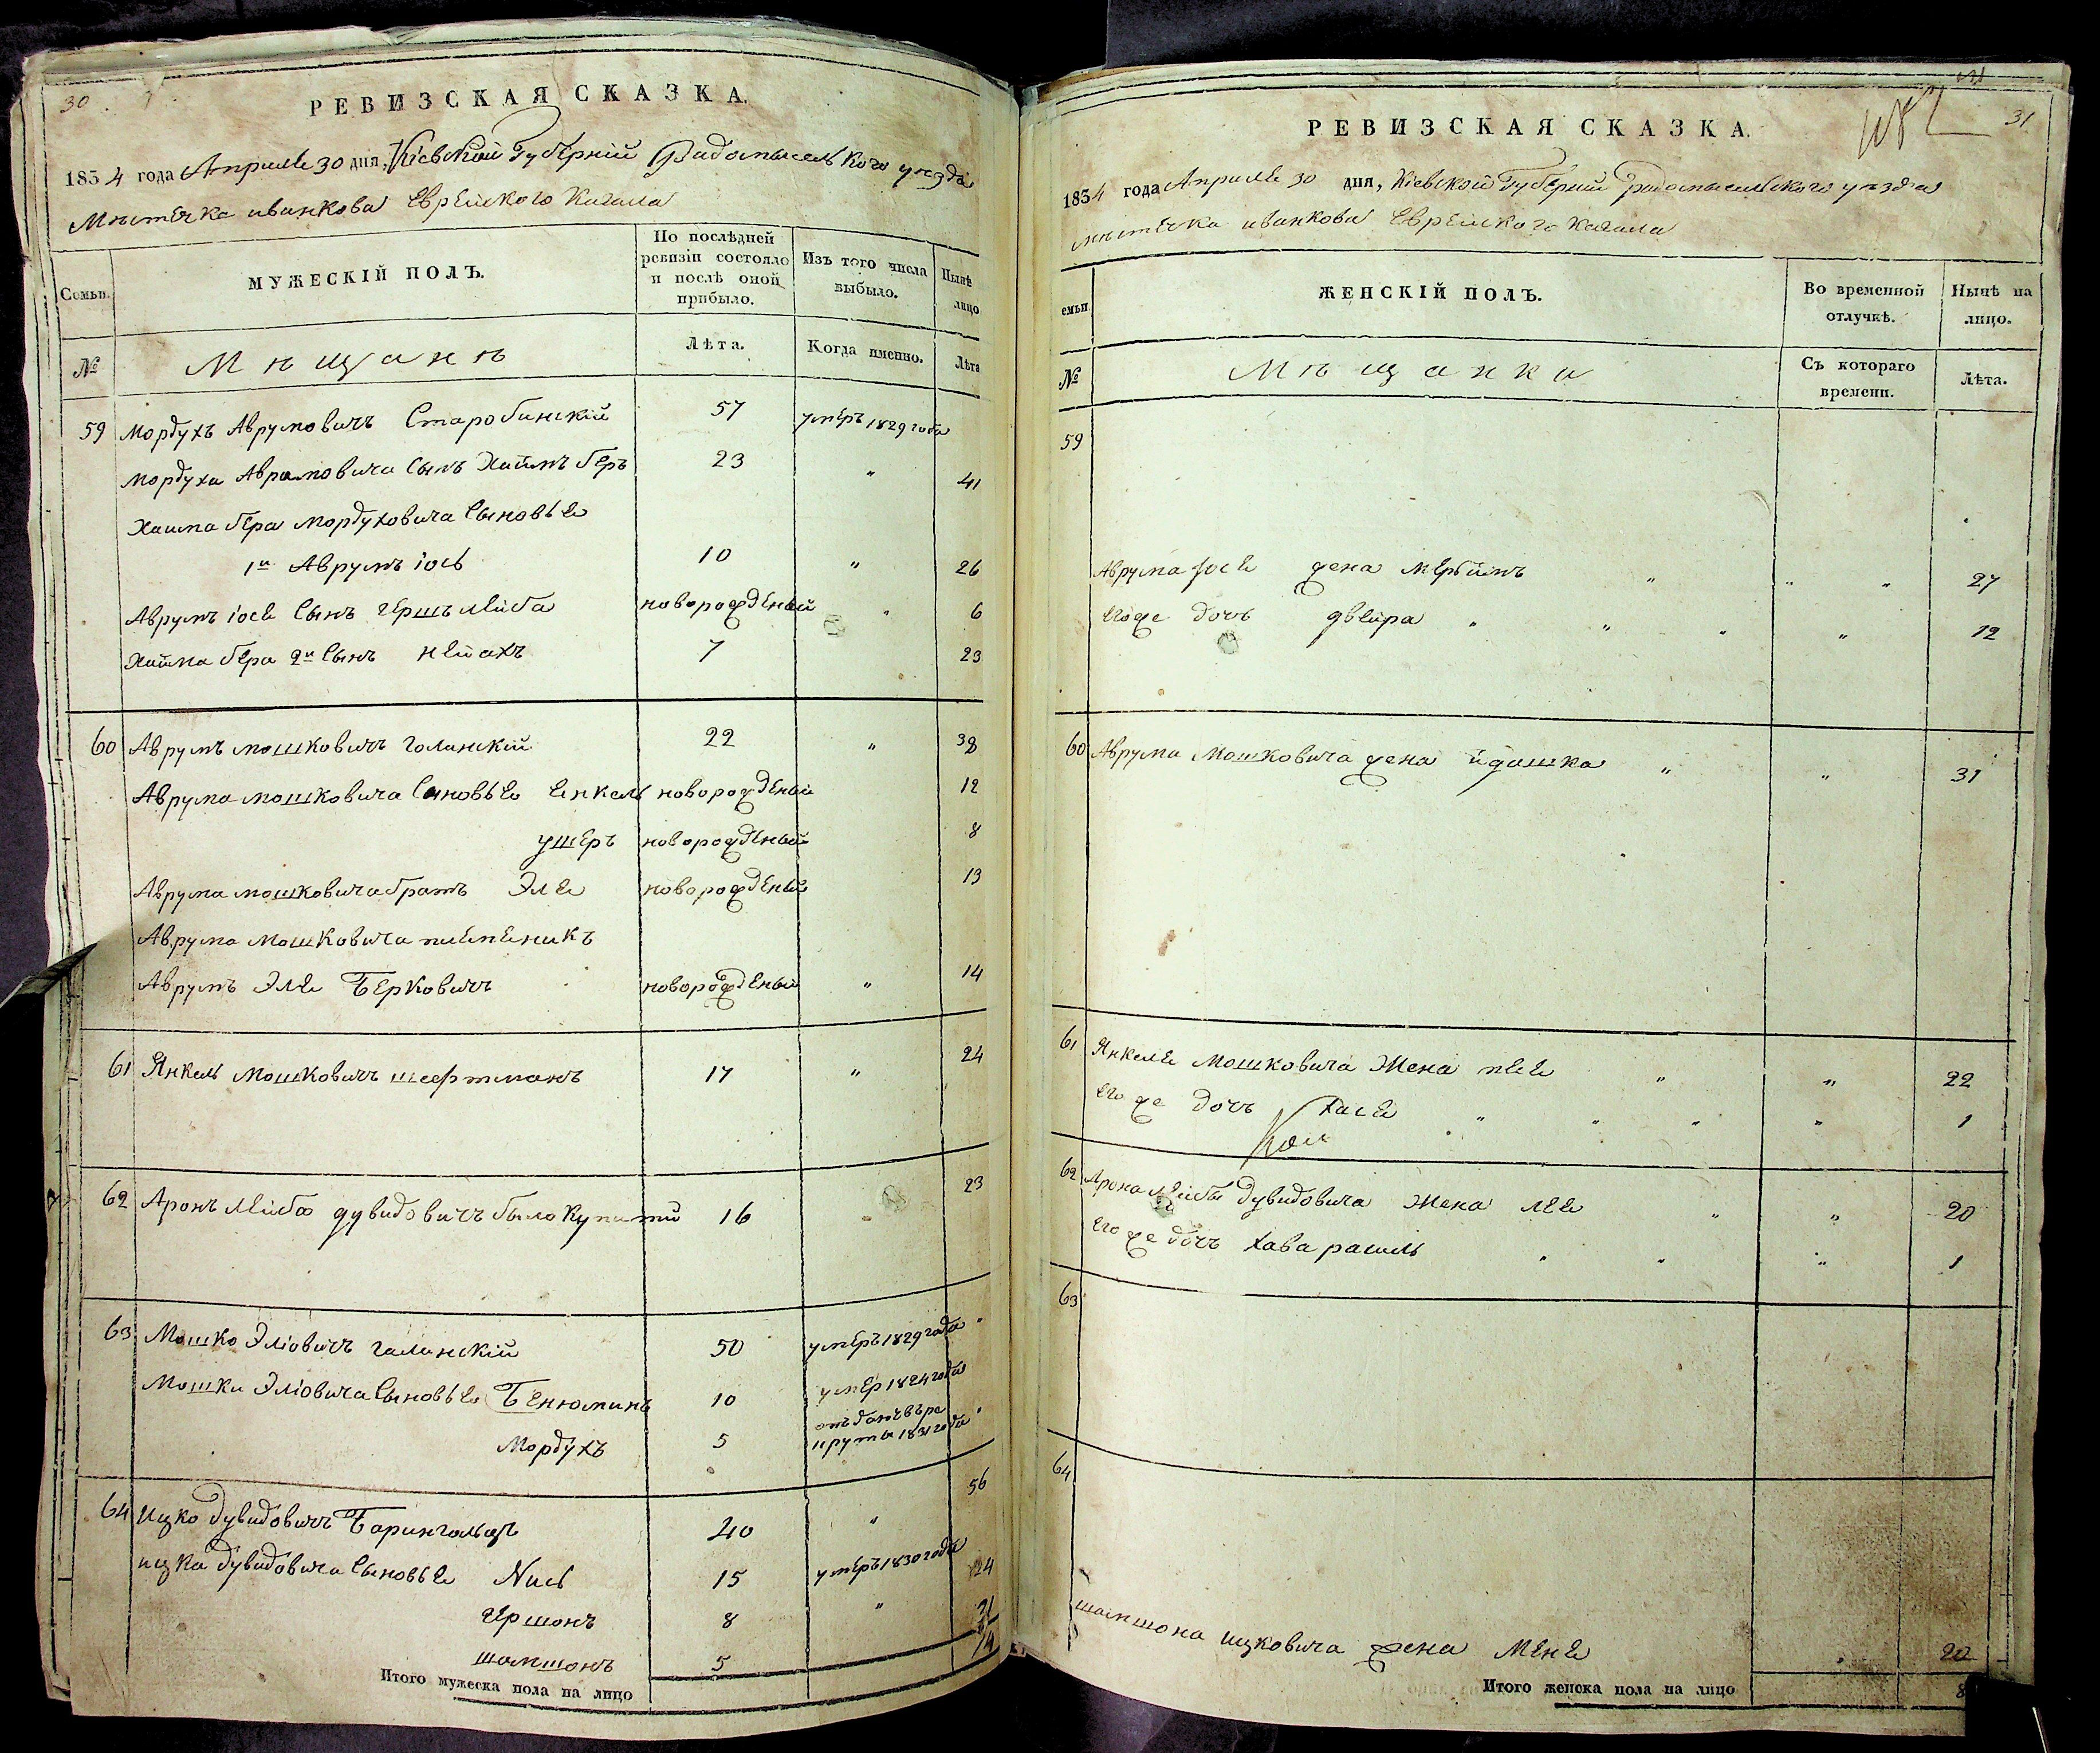 30
РЕВИЗСКАЯ СКАЗКА.
1834 года Апреля 30 дня, Кіевской Губерніи Радомысельского уезда
Мѣстечка иванкова Еврейского Кагала
Семьи.
МУЖЕСКІЙ ПОЛЪ.
По послѣдней ревизіи состояло и послѣ оной прибыло.
Изъ того числа выбыло.
Нынѣ лицо
№
Мѣщанѣ
Лѣта.
Когда именно.
Лѣта
59 Мордухъ Аврумовичъ Старобинскій 57 умеръ 1829 года
Мордуха Аврамовича Сынъ Хаимъ беръ 23 " 41
Хаима бера Мордуховича Сыновье
1й Аврумъ іось 10 " 26
Аврумъ іося Сынъ гершъ лейба новорожденый " 6
Хаима бера 2й Сынъ нейахъ 7 23
60 Аврумъ мошковичъ галинскій 22 " 38
Аврума мошковича Сыновье Енкель новорожденый 12
ушеръ новорожденый 8
Аврума мошковича братъ Эле новорожденый 13
Аврума мошковича племеникъ
Аврумъ Эле Берковичъ новорожденый " 14
61 Янкель мошковичъ шефтманъ 17 " 24
62 Аронъ Лейба дувидовичъ белокупитий 16 " 23
63 Мошко Эліовичъ галинскій 50 умеръ 1829 года "
Мошки Эліовича Сыновье Бенюминъ 10 умер 1824 года
Мордухъ 5 отъданъ въ рекруты 1831 года "
64 Ицко дувидовичъ Барингольцъ 40 " 56
ицка дувидовича Сыновье Нись 15 умеръ 1830 года
гершонъ 8 " 24
шамшонъ 5 21
Итого мужеска пола на лицо 14
31
РЕВИЗСКАЯ СКАЗКА.
1834 года Апреля 30 дня, Кіевской Губерніи радомысельского уезда
мѣстечка иванкова Еврейского кагала
емьи
ЖЕНСКІЙ ПОЛЪ.
Во временной отлучкѣ.
Нынѣ на лицо.
№
Мѣщанки
Съ котораго времени.
Лѣта.
59
Аврума іося жена мерьимъ " " " 27
Егоже дочъ двейра " " " " 12
60 Аврума мошковича жена идашка " " 31
61 Янкеля мошковича Жена песе " " 22
Егоже дочъ хася " " " " 1
62 Арона лейбы дувидовича Жена лее " " 20
Егоже дочъ хава рашиль " " " 1
63
64
шамшона ицковича жена Мене " 20
Итого женска пола на лицо 8